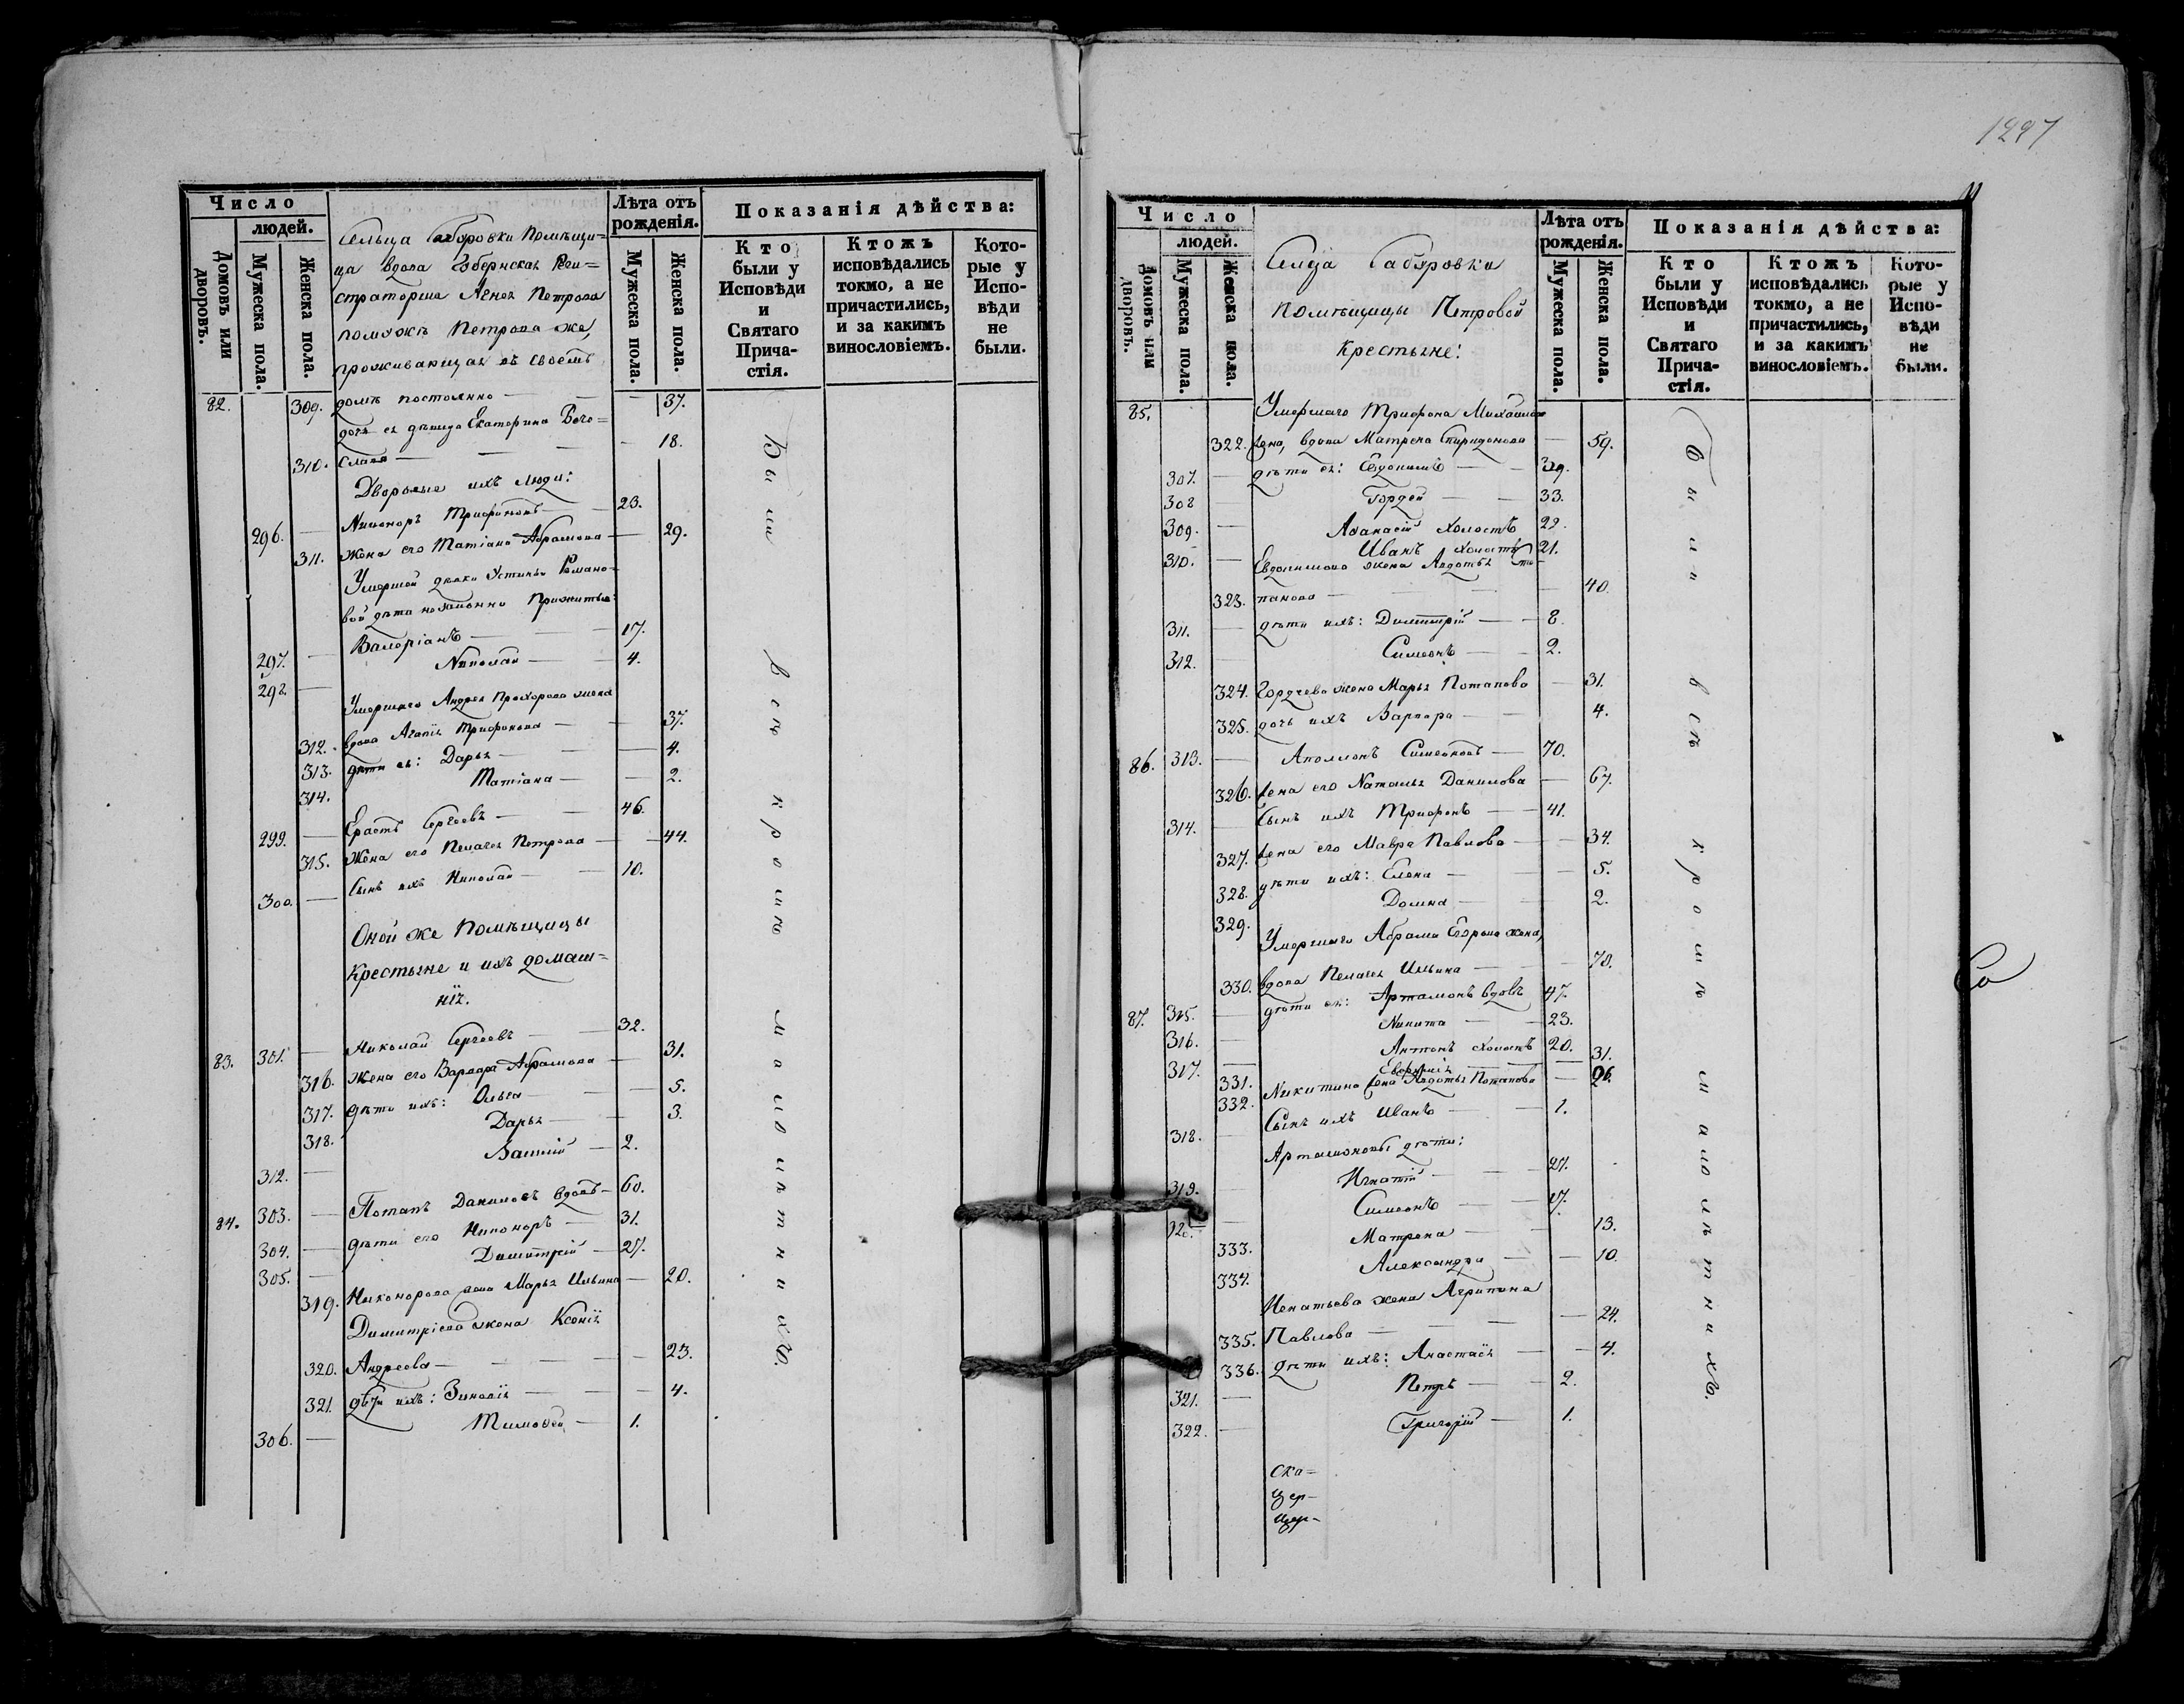 1227
Число
людей.
Домовъ или дворовъ.
Мужеска пола.
Женска пола.
Сельца Сабуровки Помѣщи=
ца вдова Губернская Реги=
страторша Агнея Петрова
помужѣ Петрова же,
проживающая въ своемъ
Лѣта отъ рожденія.
Мужеска пола.
Женска пола.
Показанія дѣйства:
Кто были у Исповѣди и Святаго Прича-стія.
Ктожъ исповѣдались токмо, а не причастились, и за какимъ винословіемъ.
Кото-рые у Испо-вѣди не были.
82. 309. домѣ постоянно — 37.
дочь ея дѣвица Екатерина
310. — 18.
Дворовые ихъ люди:
296. — Никоноръ Трифоновъ — 23.
311. Жена его Татіана Абрамова — 29.
Умершей дѣвки Устиньи Романо-
вой дѣти незаконно прижитые:
297. — Валеріанъ — 17.
298. — Николай — 4.
Умершаго Андрея Прохорова жена
312. вдова Агапія Трифонова — 37.
313. дѣти ея: Дарья — 4.
314. Татіана — 2.
299. — Ерастъ Сергѣевъ — 46.
315. Жена его Пелагея Петрова — 44.
300. — Сынъ ихъ Николай — 10.
Оной же Помѣщицы
Крестьяне и ихъ домаш=
нія.
83. 301. — Николай Сергѣевъ — 32.
316. Жена его Варвара Абрамова — 31.
317. Дѣти ихъ: Ольга — 5.
318. Дарья — 3.
312. — Василій — 2.
84. 303. — Потапъ Даниловъ вдовъ — 60.
304. — Дѣти его Никоноръ — 31.
305. — Димитрій — 27.
319. Никонорова жена Марья Ильина — 20.
Димитріева жена Ксенія
320. Андреева — 23.
321. Дѣти ихъ: Зиновія — 4.
306. — Тимоѳей — 1.
Были всѣ кромѣ малолѣтнихъ.
Число
людей.
Домовъ или дворовъ.
Мужеска пола.
Женска пола.
Сельца Сабуровки
помѣщицы Петровой
Крестьяне:
Лѣта отъ рожденія.
Мужеска пола.
Женска пола.
Показанія дѣйства:
Кто были у Исповѣди и Святаго Прича-стія.
Ктожъ исповѣдались токмо, а не причастились, и за какимъ винословіемъ.
Кото-рые у Испо-вѣди не были.
85. Умершаго Трифона Михайлова
322. жена, вдова Матрена Спиридонова — 59.
307. — дѣти ея: Евдокимъ — 39.
308 Гордей — 33.
309. — Аѳанасій холостъ 22.
310. — Иванъ холостъ 21.
Евдокимова жена Авдотья По-
323. тапова — 40.
311. — дѣти ихъ: Димитрій — 8.
312. — Симеонъ — 2.
324. Гордѣева жена Марья Потапова — 31.
325. дочь ихъ Варвара — 4.
86. 313. — Аполлонъ Симеоновъ — 70.
326. жена его Наталья Данилова — 67.
314. — Сынъ ихъ Трифонъ — 41.
327. жена его Мавра Павлова — 34.
328. дѣти ихъ: Елена — 5.
329. Домна — 2.
Умершаго Абрама Егорова жена,
330. вдова Пелагея Ильина — 70.
87. 315. — дѣти ея: Артамонъ вдовъ 47.
316. — Никита — 23.
317. — Антонъ холостъ 20.
331. Евфимія 31.
332. Никитина жена Авдотья Потапова — 26.
318. — Сынъ ихъ Иванъ — 1.
Артамоновы дѣти:
319. — Игнатій — 27.
320. — Симеонъ — 17.
333. Матрена — 13.
334. Александра — 10.
Игнатьева жена Агрипина
335. Павлова — 24.
336. дѣти ихъ: Анастасія — 4.
321. — Петръ — 2.
322. — Григорій — 1.
Были всѣ кромѣ малолѣтнихъ.
Ска=
цер-
Со